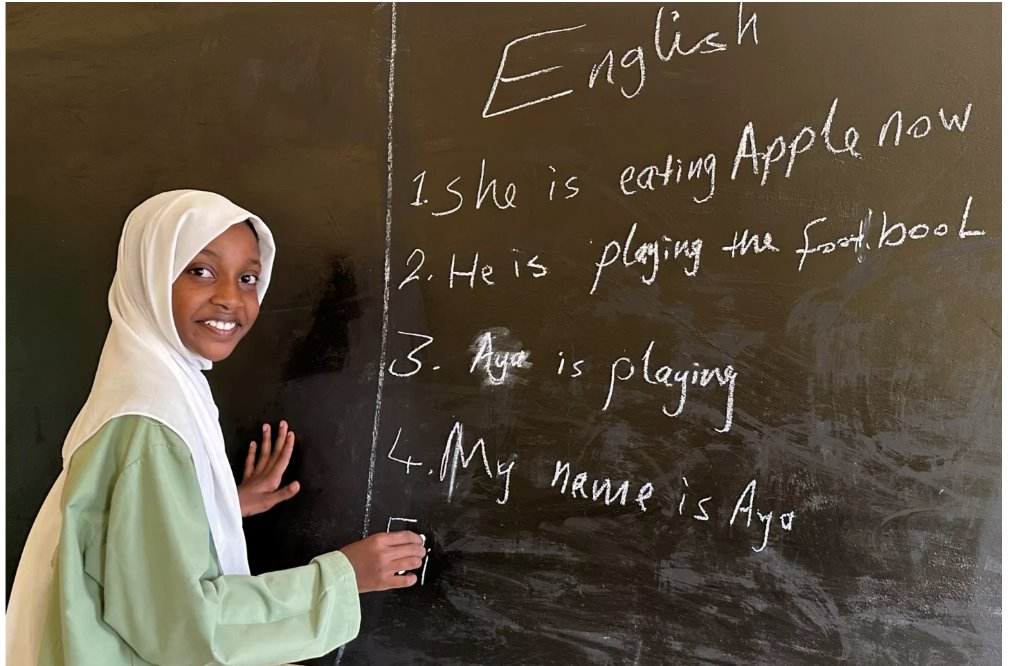 English
1. She is eating Apple now
2. He is playing the football
3. Aya is playing
4. My name is Aya